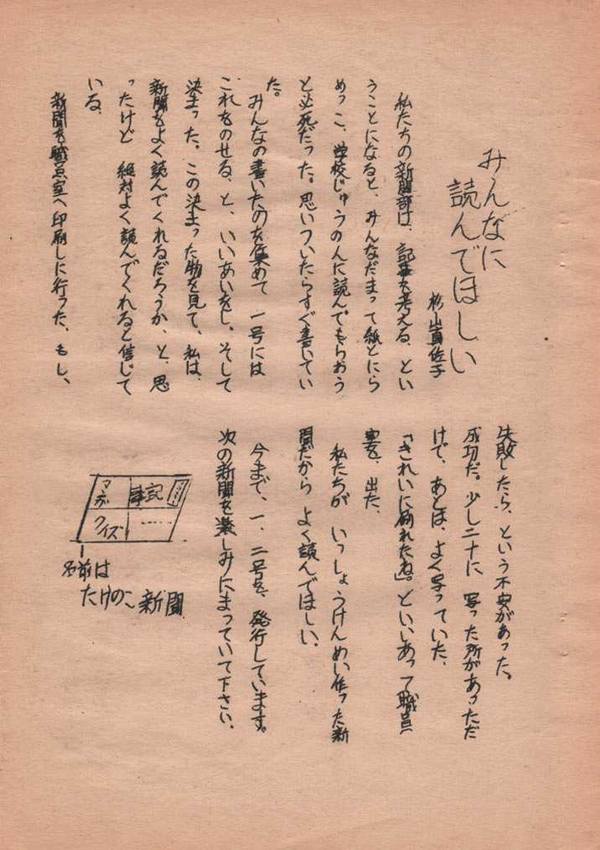 みんなに
読んでほしい
杉山真佐子
私たちの新聞部は、記事を考える、とい
うことになると、みんなだまって紙とにら
めっこ、学校じゅうのんに読んでもらおう
と必死だった。思いついたらすぐ書いてい
た。
みんなの書いたのを集めて 一号には
これをのせる、と、いいあいをし、そして
決まった。この決まった物を見て、私は、
新聞をよく読んでくれるだろうか、と、思
ったけど 絶対よく読んでくれると信じて
いる。
新聞を職員室へ印刷しに行った、もし、
失敗したら、という不安があった。
成功だ。少し二十に 写った所があっただ
けで、あとは、よく写っていた。
「きれいに刷れたね」。といいあって職員
室を、出た。
私たちが いっしょうけんめい作った新
聞だから よく読んでほしい。
今まで、一、二号を、発行しています。
次の新聞を楽しみにまっていて下さい。
記事
マンガ
クイズ
名前は
たけのこ新聞